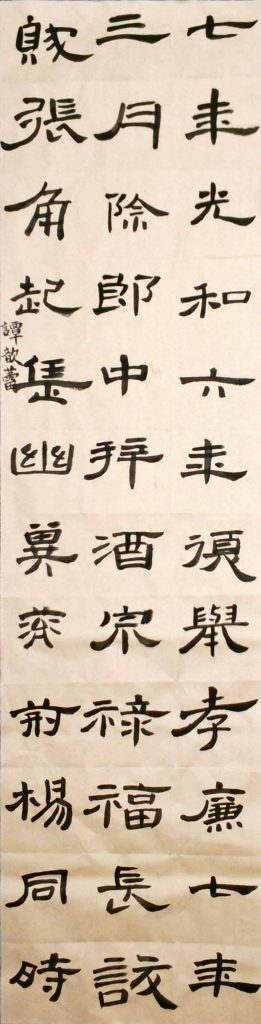 七年光和六年復舉孝廉七年
三月除郎中拜酒泉祿福長訞
賊張角起兵幽冀兗荊楊同時
譚歆蕾